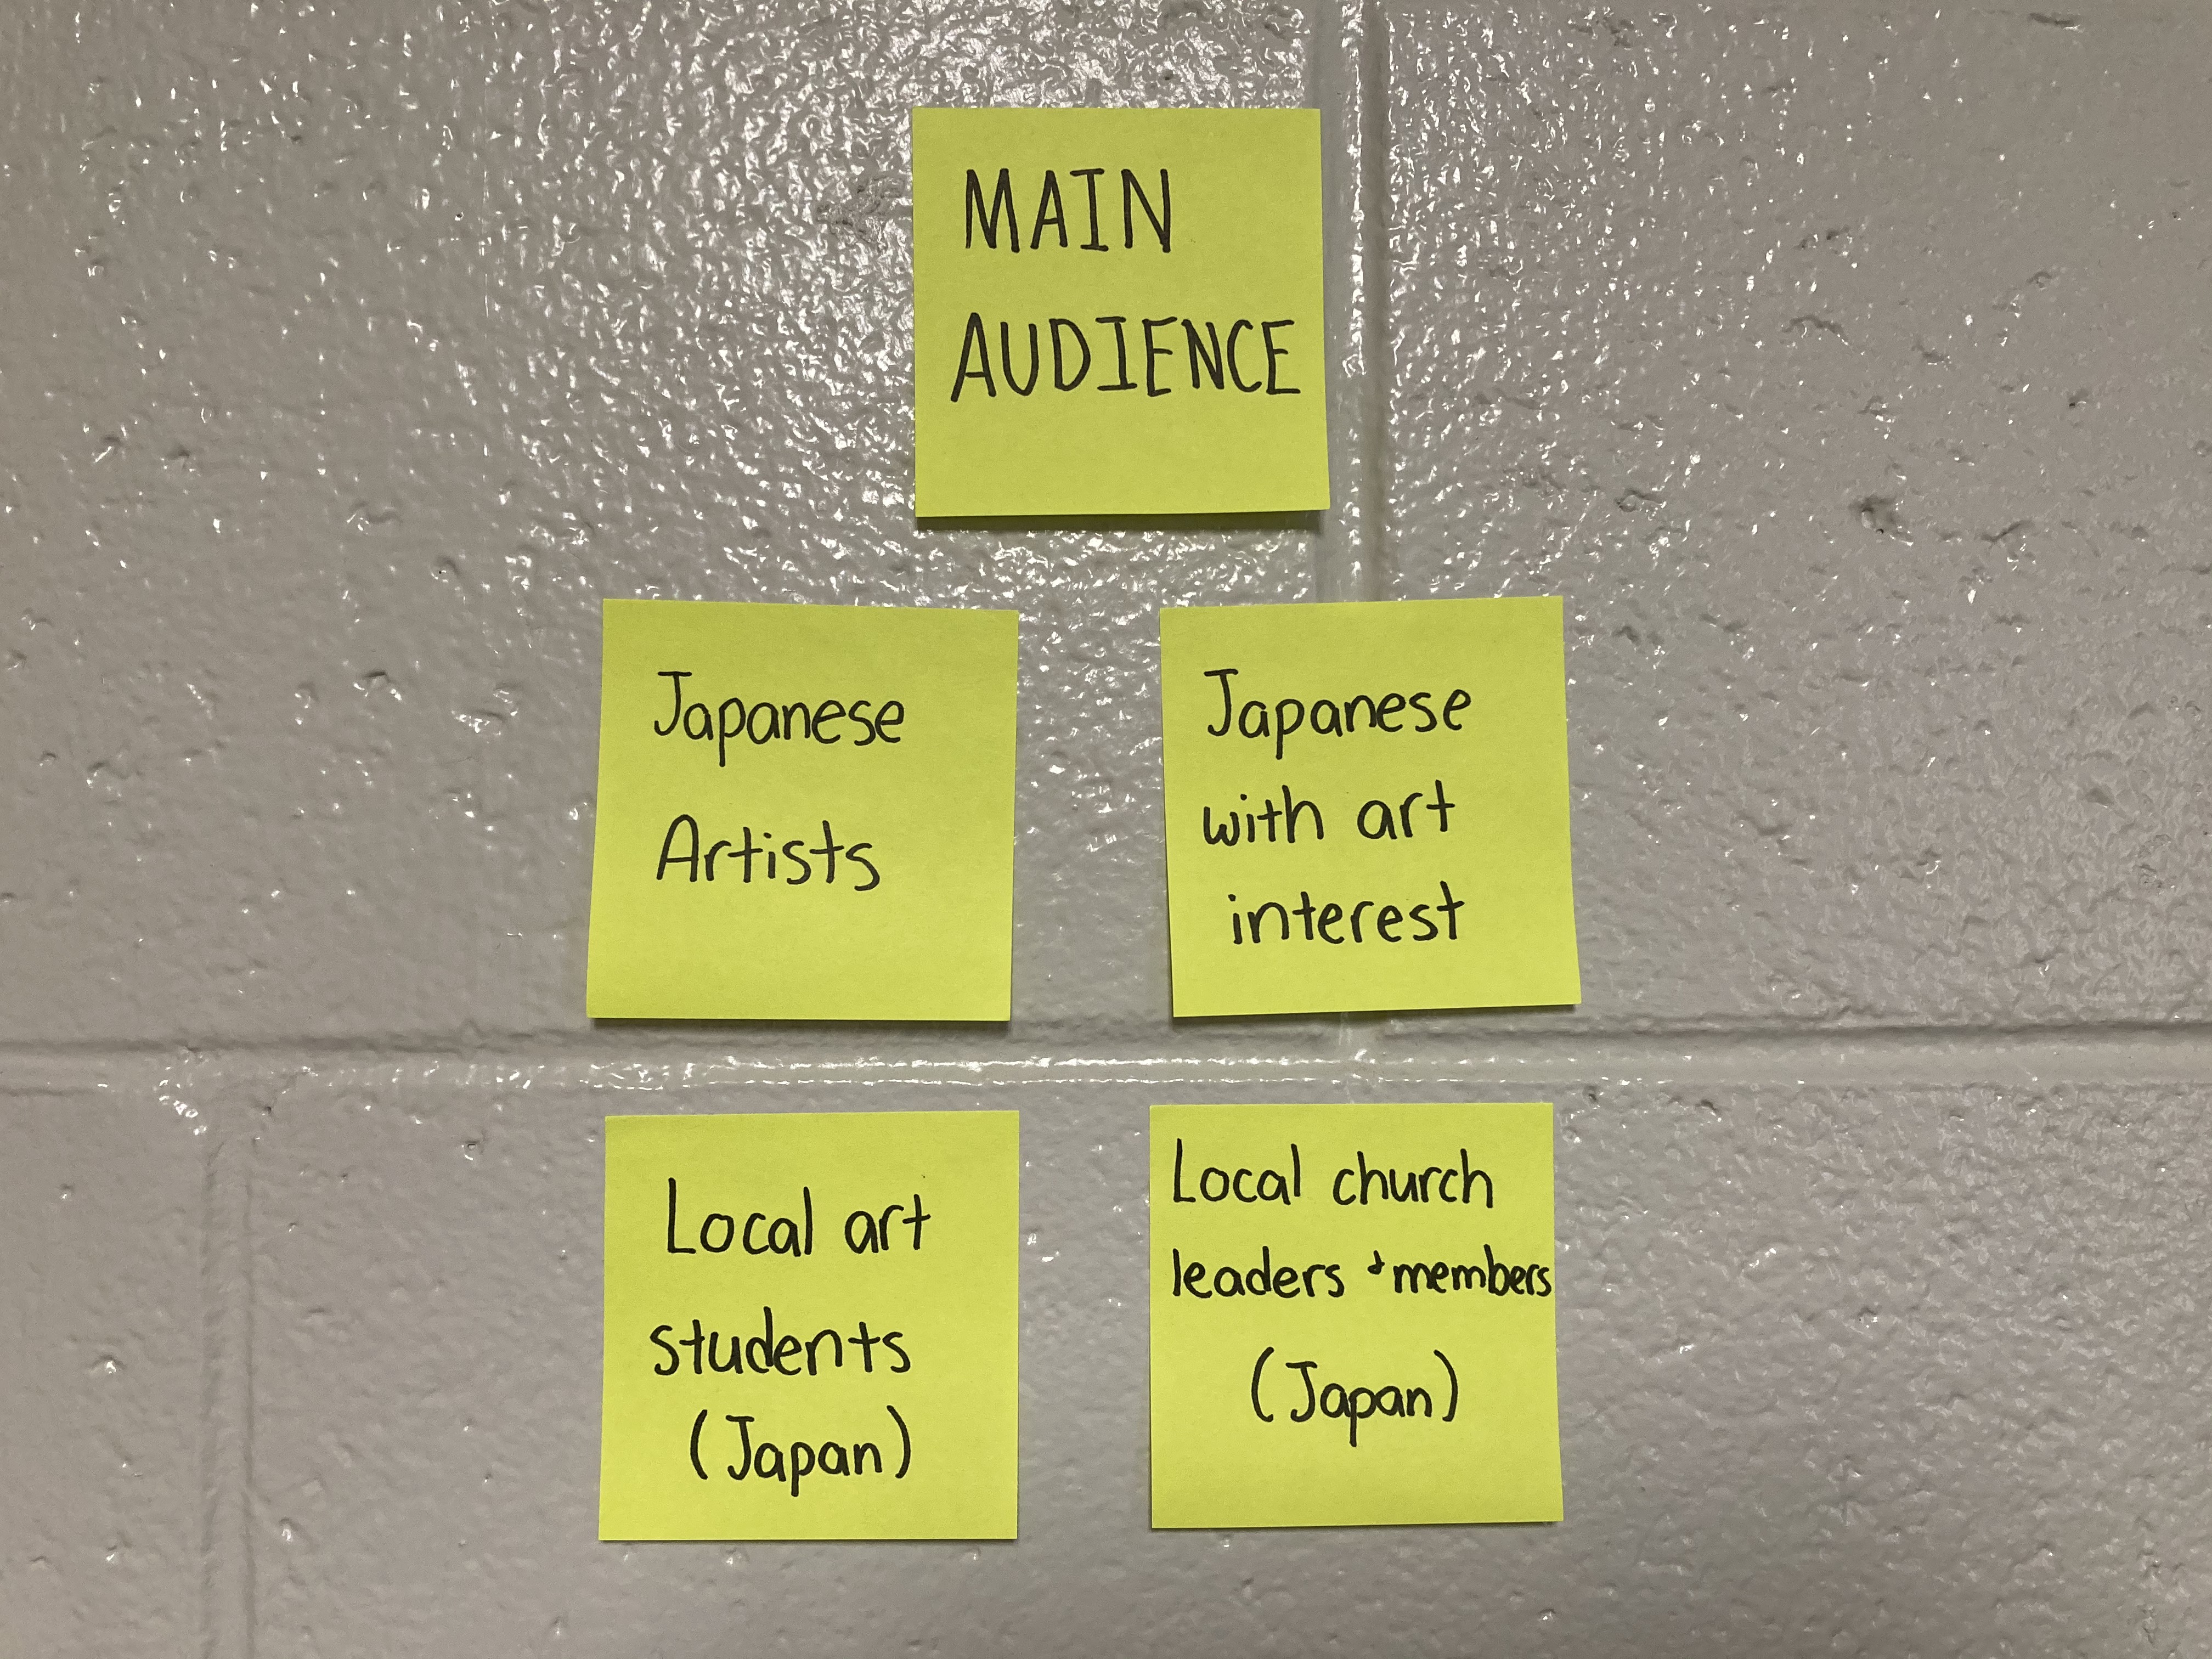 MAIN
AUDIENCE
Japanese
Artists
Japanese
with art
interest
Local art
students
(Japan)
Local church
leaders + members
(Japan)